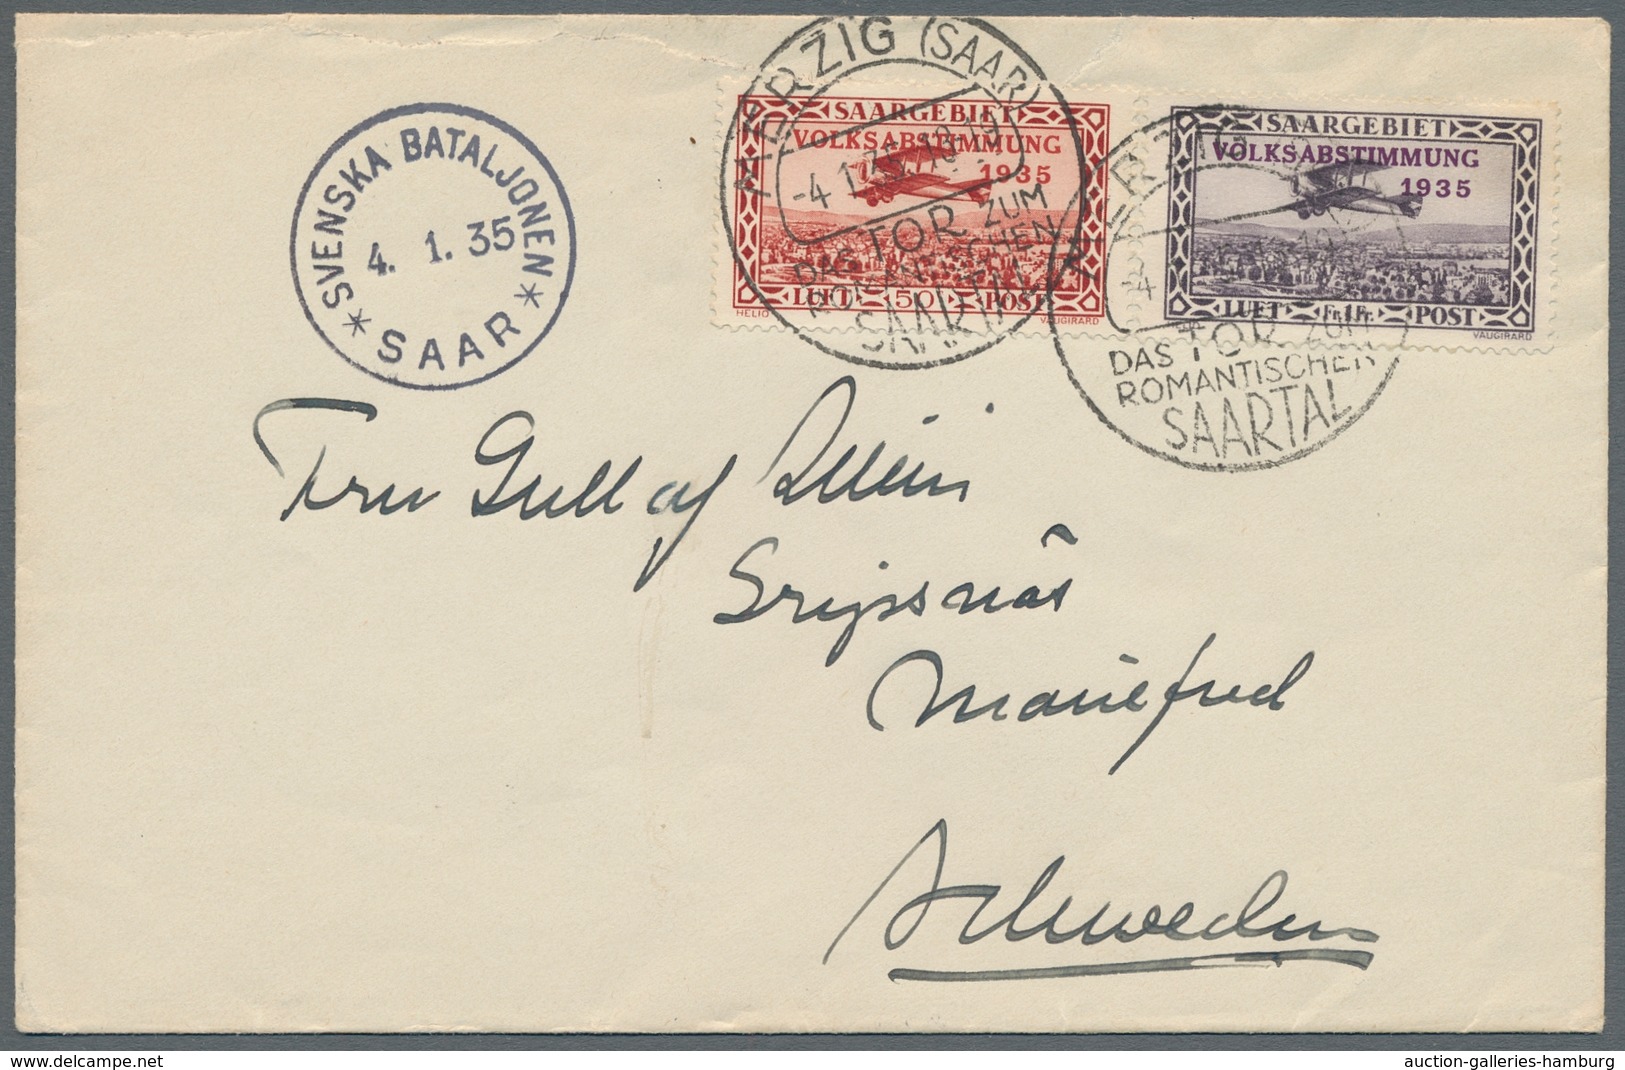 SVENSKA BATALJONEN
4. 1. 35
* SAAR *
MERZIG (SAAR)
-4.1.35.18-19
DAS TOR ZUM
ROMANTISCHEN
SAARTAL
SAARGEBIET
VOLKSABSTIMMUNG
1935
LUFT 50 POST
HELIO VAUGIRARD
SAARGEBIET
VOLKSABSTIMMUNG
1935
LUFT Fr.1Fr. POST
VAUGIRARD
MERZIG
DAS TOR ZUM
ROMANTISCHEN
SAARTAL
Fru Gull af
Mariefred
Schweden
auction-galleries-hamburg